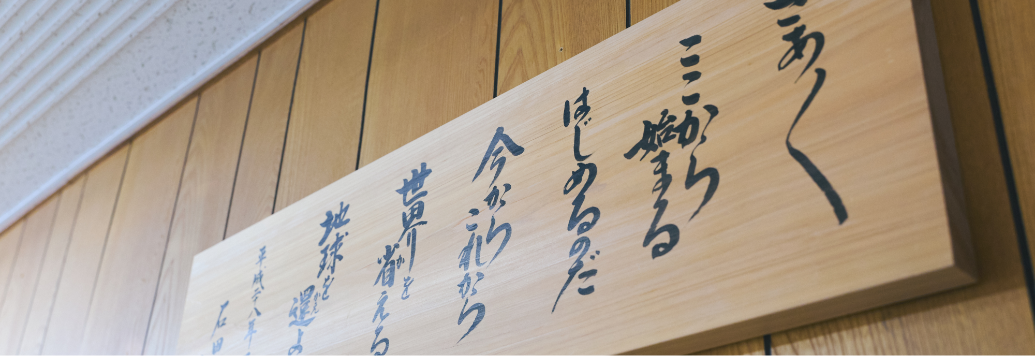 こあーく
ここから
始まる
はじめるのだ
今から
これから
世界を
省える
地球を
還
平成二八年
石田